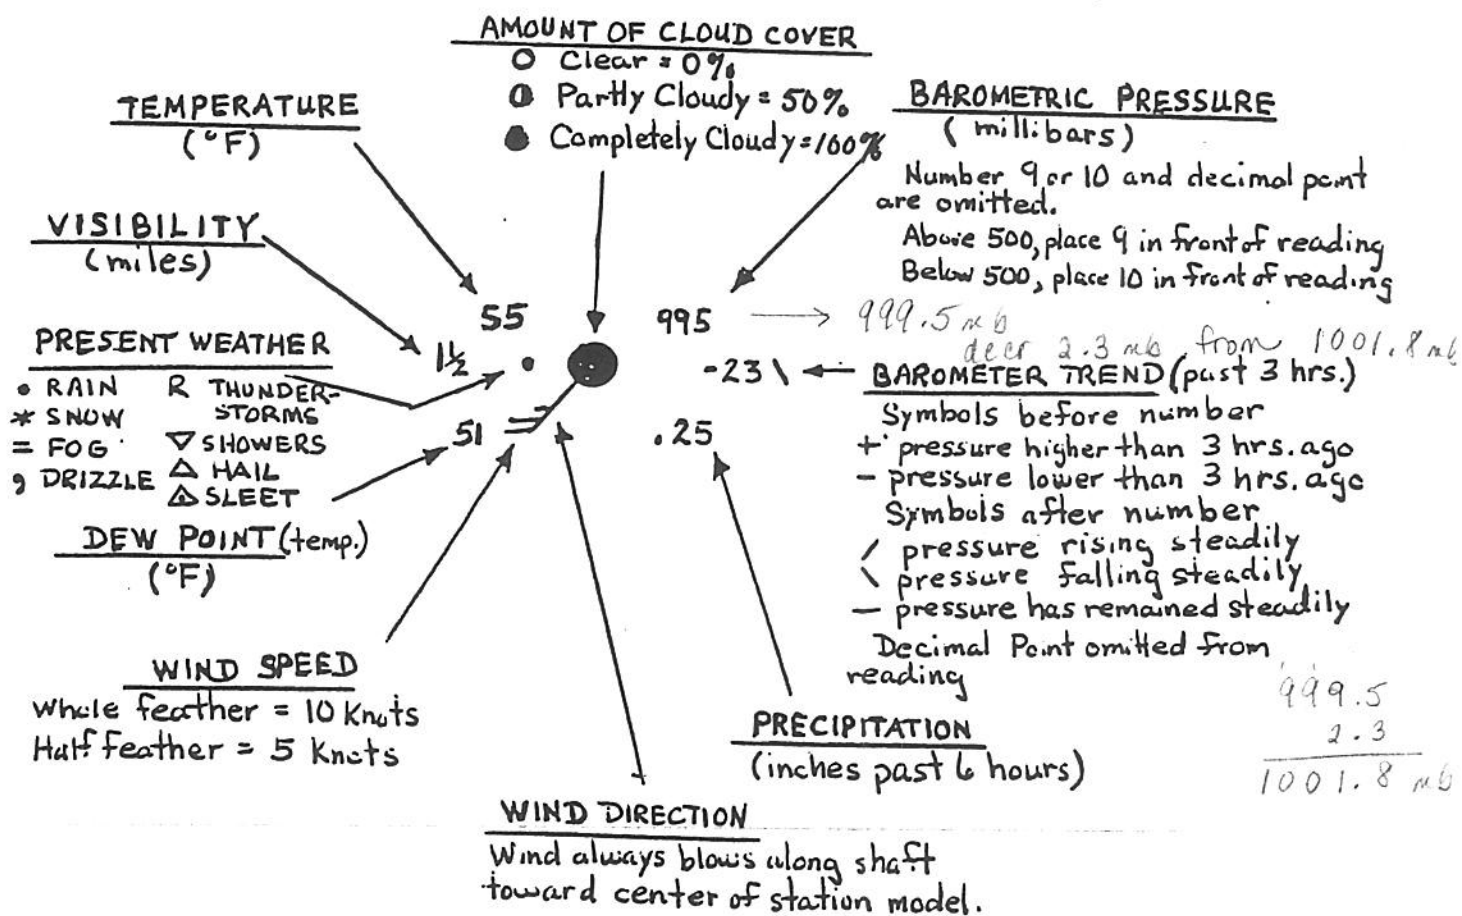 AMOUNT OF CLOUD COVER
○ Clear = 0%
◑ Partly Cloudy = 50%
● Completely Cloudy = 100%
TEMPERATURE
(°F)
VISIBILITY
(miles)
PRESENT WEATHER
• RAIN R THUNDER-
* SNOW STORMS
= FOG ▽ SHOWERS
, DRIZZLE △ HAIL
△ SLEET
DEW POINT (temp.)
(°F)
WIND SPEED
Whole feather = 10 Knots
Half feather = 5 Knots
55
1½
51
995
-23\
.25
BAROMETRIC PRESSURE
(millibars)
Number 9 or 10 and decimal point
are omitted.
Above 500, place 9 in front of reading
Below 500, place 10 in front of reading
→ 999.5 mb
decr 2.3 mb from 1001.8 mb
BAROMETER TREND (past 3 hrs.)
Symbols before number
+ pressure higher than 3 hrs. ago
- pressure lower than 3 hrs. ago
Symbols after number
/ pressure rising steadily
\ pressure falling steadily
— pressure has remained steadily
Decimal Point omitted from
reading
999.5
2.3
1001.8 mb
PRECIPITATION
(inches past 6 hours)
WIND DIRECTION
Wind always blows along shaft
toward center of station model.